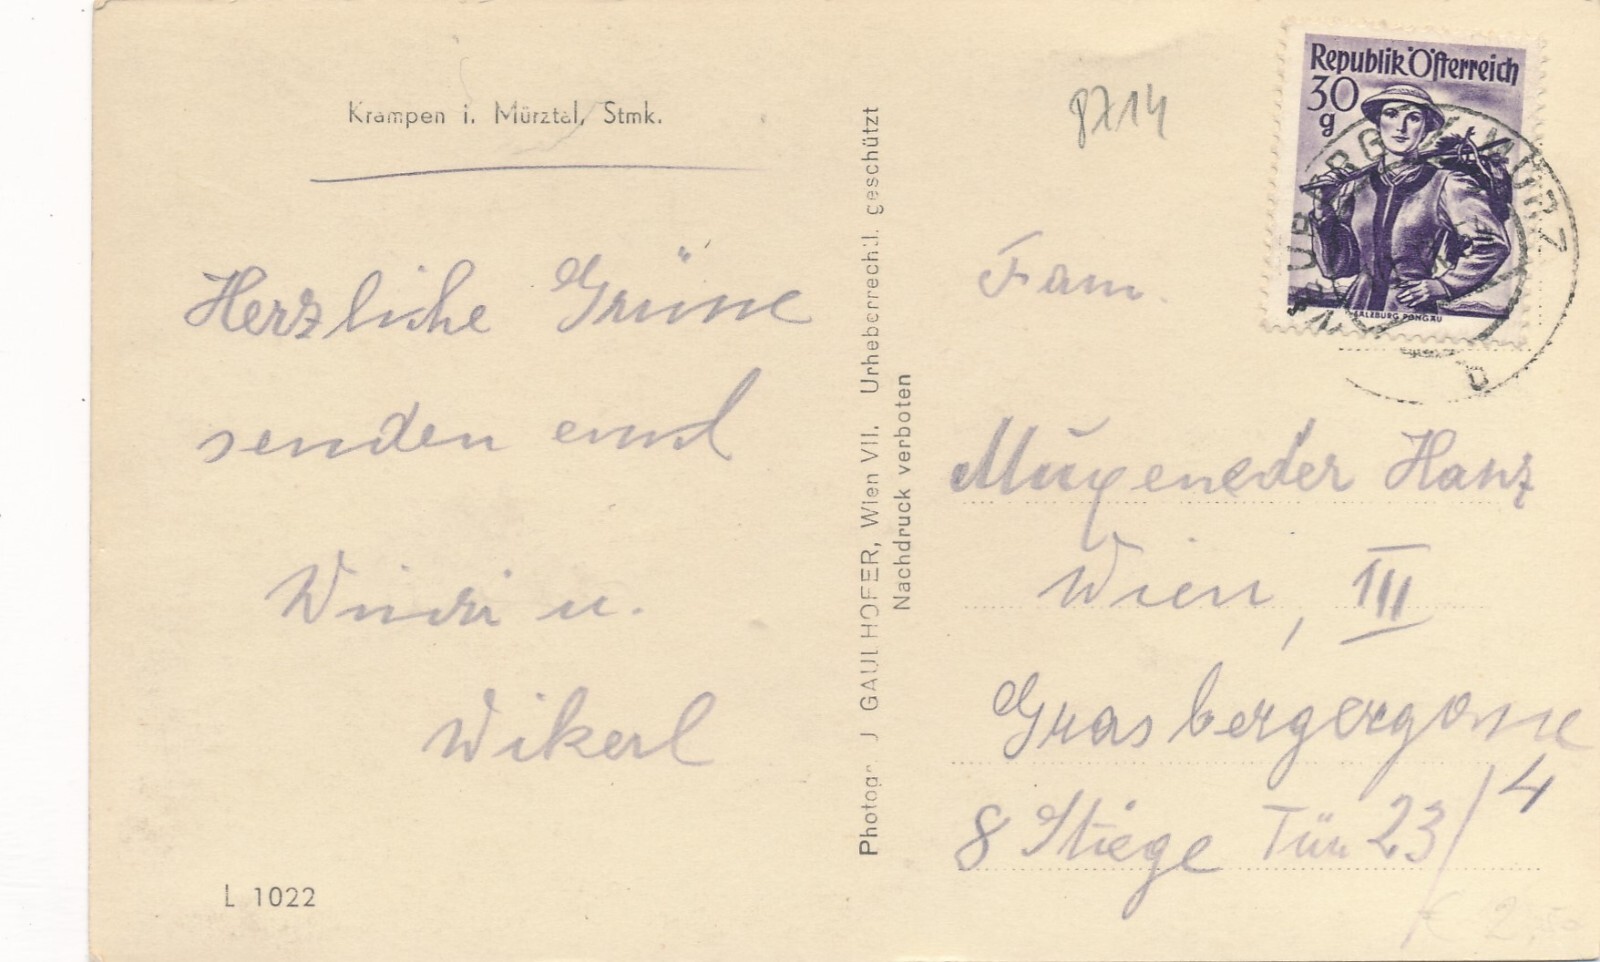 Krampen i. Mürztal, Stmk.
Herzliche Grüsse
senden euch
Windi u.
Wikerl
L 1022
Photogr. J GAULHOFER, Wien VII. Urheberrechtl. geschützt
Nachdruck verboten
8714
Republik Österreich
30
g
SALZBURG PONGAU
MÜRZ
b
Fam.
Hans
Wien, III
Grasbergergasse
8 Stiege Tür 23/4
€ 2,50